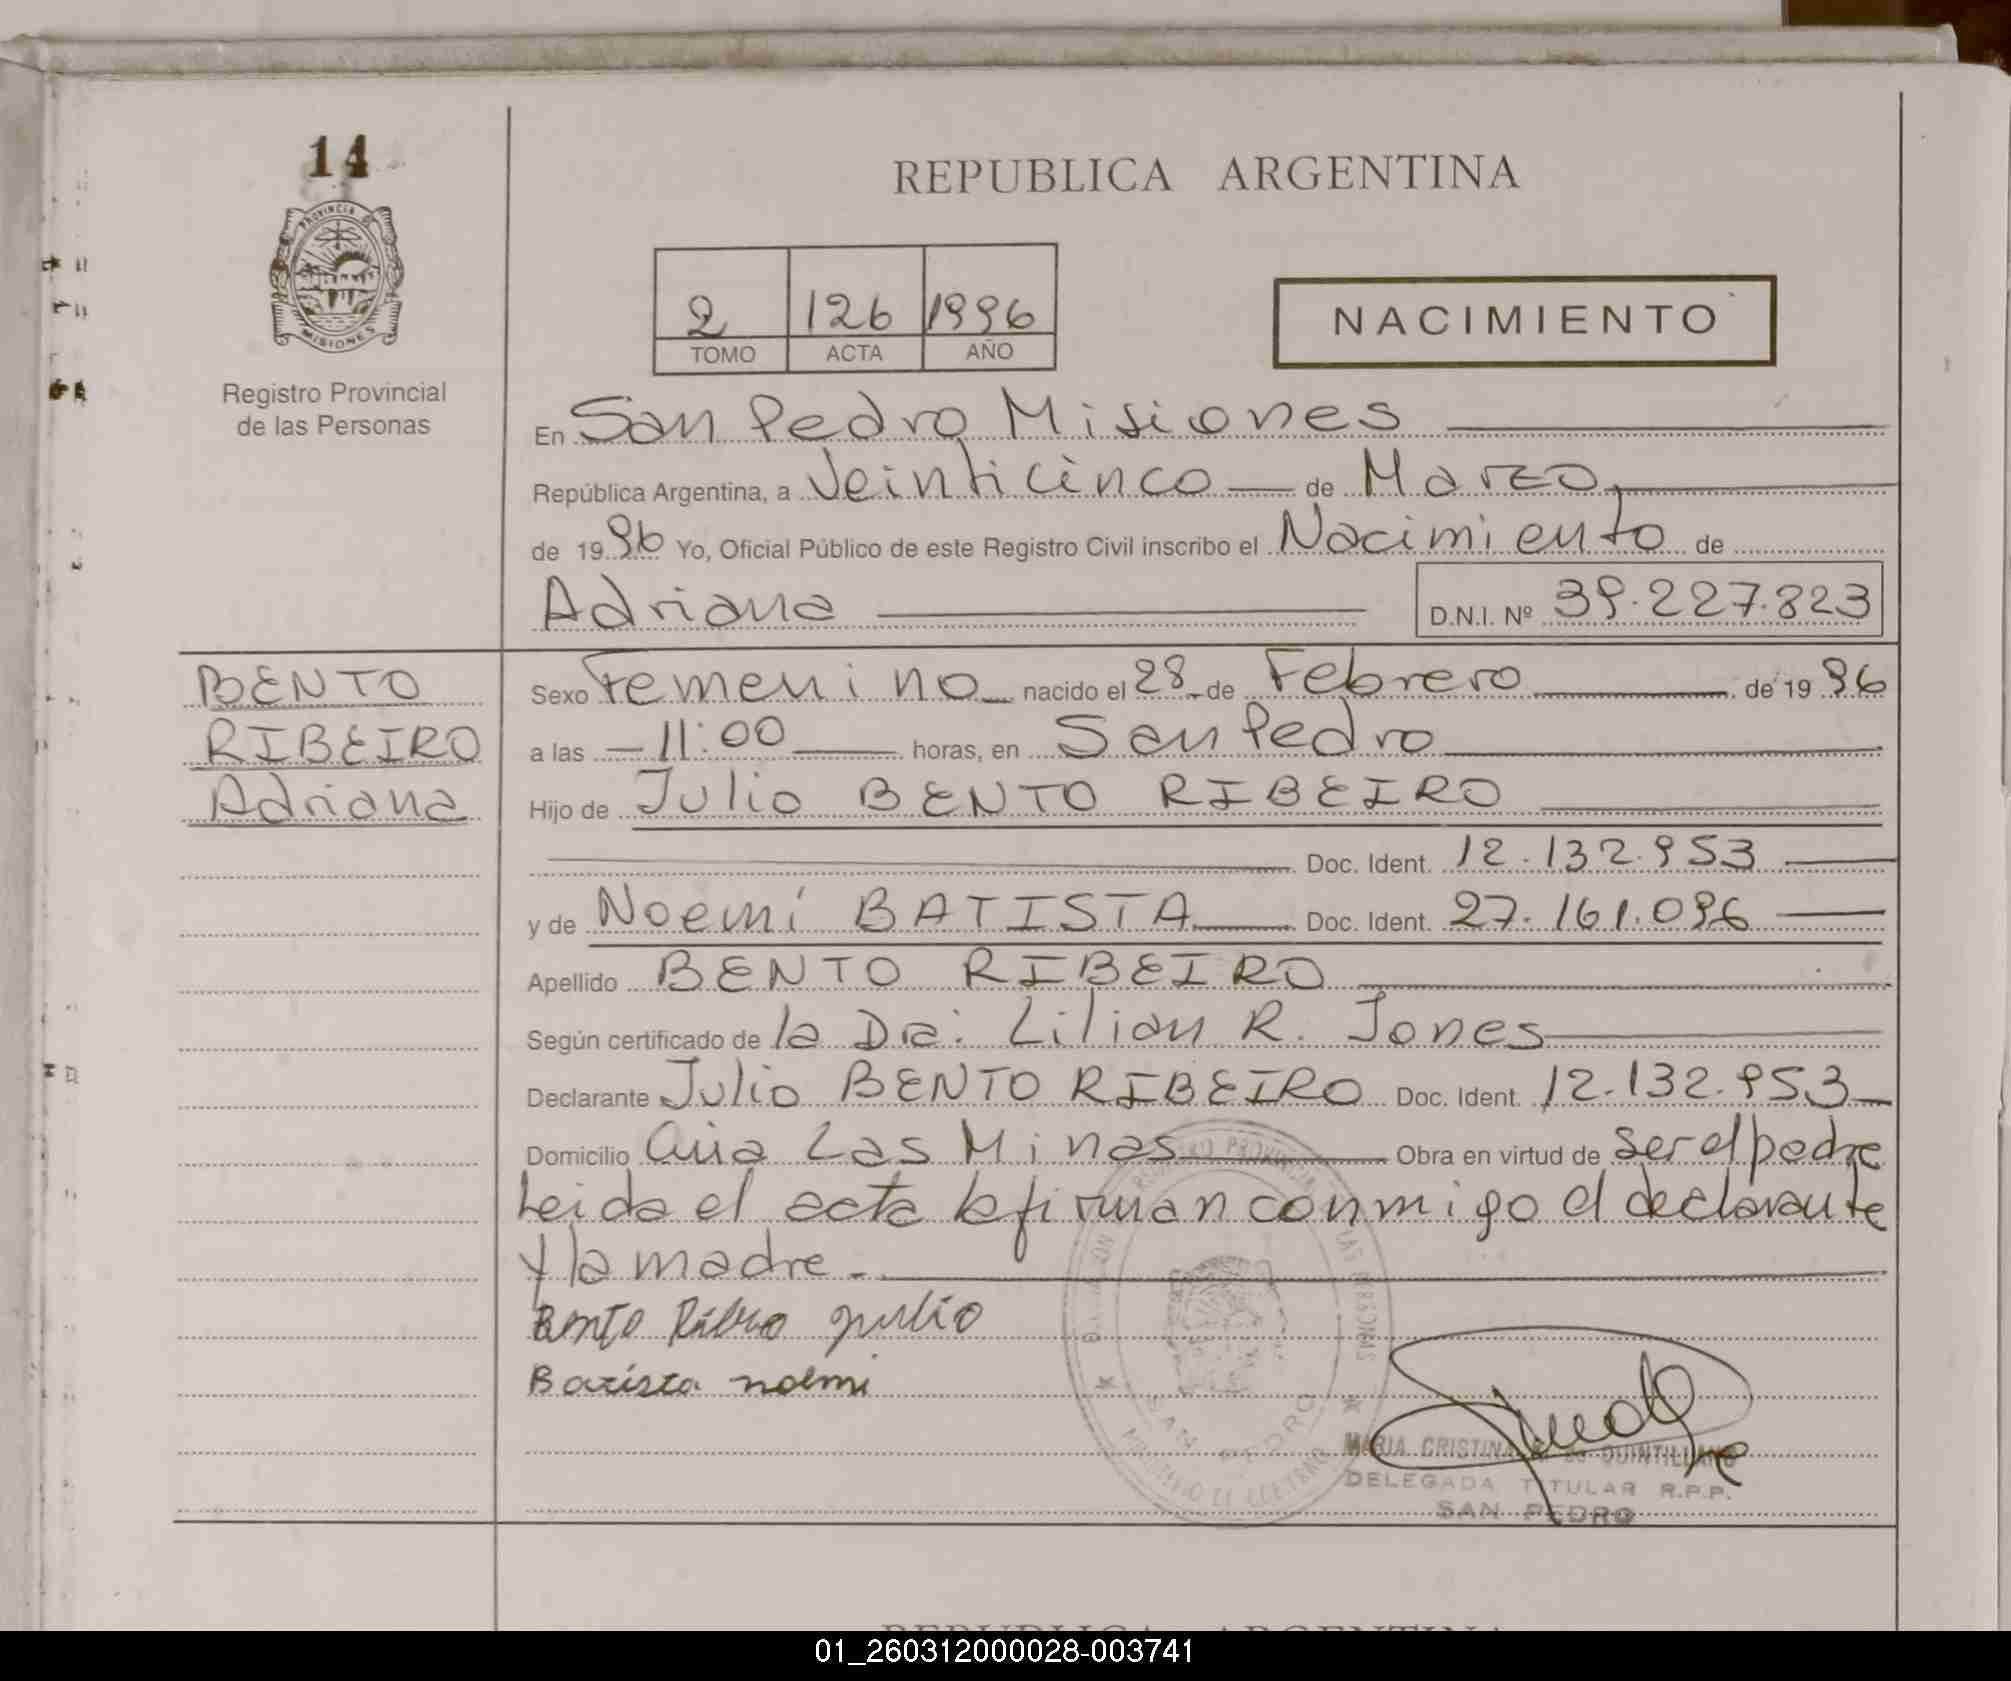 14
PROVINCIA DE
MISIONES
Registro Provincial
de las Personas
REPUBLICA ARGENTINA
2 126 1996
TOMO ACTA AÑO
NACIMIENTO
En San Pedro Misiones
República Argentina, a Veinticinco de Marzo
de 1996 Yo, Oficial Público de este Registro Civil inscribo el Nacimiento de
Adriana D.N.I. Nº 39.227.823
BENTO
RIBEIRO
Adriana
Sexo Femenino nacido el 28 de Febrero de 1996
a las 11:00 horas, en San Pedro
Hijo de Julio BENTO RIBEIRO
Doc. Ident. 12.132.953
y de Noemí BATISTA Doc. Ident. 27.161.096
Apellido BENTO RIBEIRO
Según certificado de la Dra: Lilian R. Jones
Declarante Julio BENTO RIBEIRO Doc. Ident. 12.132.953
Domicilio Cñia Las Minas Obra en virtud de ser el padre
Leida el acta la firman conmigo el declarante
y la madre.
Bento Ribero Julio
Batista noemi
SAN PEDRO
MARIA CRISTINA de QUINTILLANO
DELEGADA TITULAR R.P.P.
SAN PEDRO
REPUBLICA ARGENTINA
01_260312000028-003741